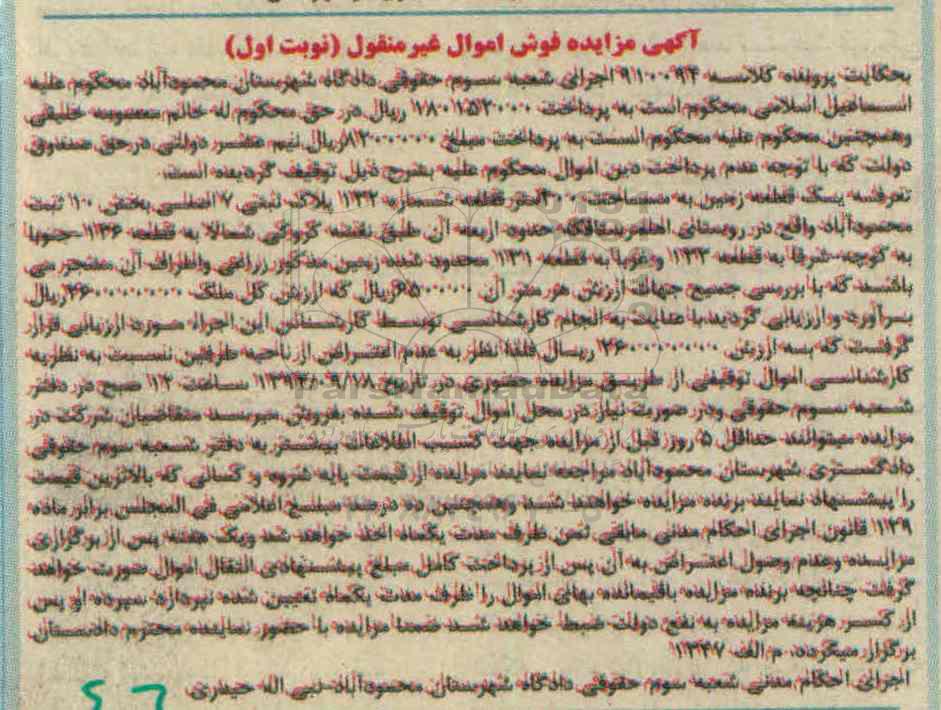 آگهی مزایده فوش اموال غیر منقول (نوبت اول)
بحکایت پرونده کلاسه ۹۱۰۰۹۴ اجرائی شعبه سوم حقوقی دادگاه شهرستان محمودآباد محکوم علیه
اسماعیل اسلامی محکوم است به پرداخت ریال در حق محکوم له خانم معصومه خلیقی
وهمچنین محکوم علیه محکوم است به پرداخت مبلغ ریال نیم عشر دولتی در حق صندوق
دولت که با توجه عدم پرداخت دین اموال محکوم علیه بشرح ذیل توقیف گردیده است:
تعرفه یک قطعه زمین به مساحت متر قطعه شماره ۱۱۳۲ پلاک ثبتی ۷ اصلی بخش ۱۰ ثبت
محمودآباد واقع در روستای حدود اربعه آن طبق نقشه کروکی شمالا به قطعه جنوبا
به کوچه شرقا به قطعه ۱۱۳۳ وغربا به قطعه ۱۱۳۱ محدود شده زمین مذکور زراعی واطراف آن مشجر می
باشد که با بررسی جمیع جهات ارزش هر متر آن ریال که ارزش کل ملک ریال
برآورد و ارزیابی گردید با عنایت به انجام کارشناسی توسط کارشناس این اجراء مورد ارزیابی قرار
گرفت که به ارزش ریال فلذا نظر به عدم اعتراض از ناحیه طرفین نسبت به نظریه
کارشناسی اموال توقیفی از طریق مزایده حضوری در تاریخ ساعت ۱۲ صبح در دفتر
شعبه سوم حقوقی ودر صورت نیاز در محل اموال توقیف شده بفروش میرسد متقاضیان شرکت در
مزایده میتوانند حداقل ۵ روز قبل از مزایده جهت کسب اطلاعات بیشتر به دفتر شعبه سوم حقوقی
دادگستری شهرستان محمودآباد مراجعه نمایند مزایده از قیمت پایه شروع و کسانی که بالاترین قیمت
را پیشنهاد نمایند برنده مزایده خواهند شد وهمچنین ده درصد مبلغ اعلامی فی المجلس برابر ماده
۱۲۹ قانون اجرای احکام مدنی مابقی ثمن ظرف مدت یکماه اخذ خواهد شد ویک هفته پس از برگزاری
مزایده وعدم وصول اعتراض به آن پس از پرداخت کامل مبلغ پیشنهادی انتقال اموال صورت خواهد
گرفت چنانچه برنده مزایده باقیمانده بهای اموال را ظرف مدت یکماه تعیین شده نپردازد سپرده او پس
از کسر هزینه مزایده به نفع دولت ضبط خواهد شد ضمنا مزایده با حضور نماینده محترم دادستان
برگزار میگردد. م الف
اجرای احکام مدنی شعبه سوم حقوقی دادگاه شهرستان محمودآباد نبی اله حیدری
ParsNamadData